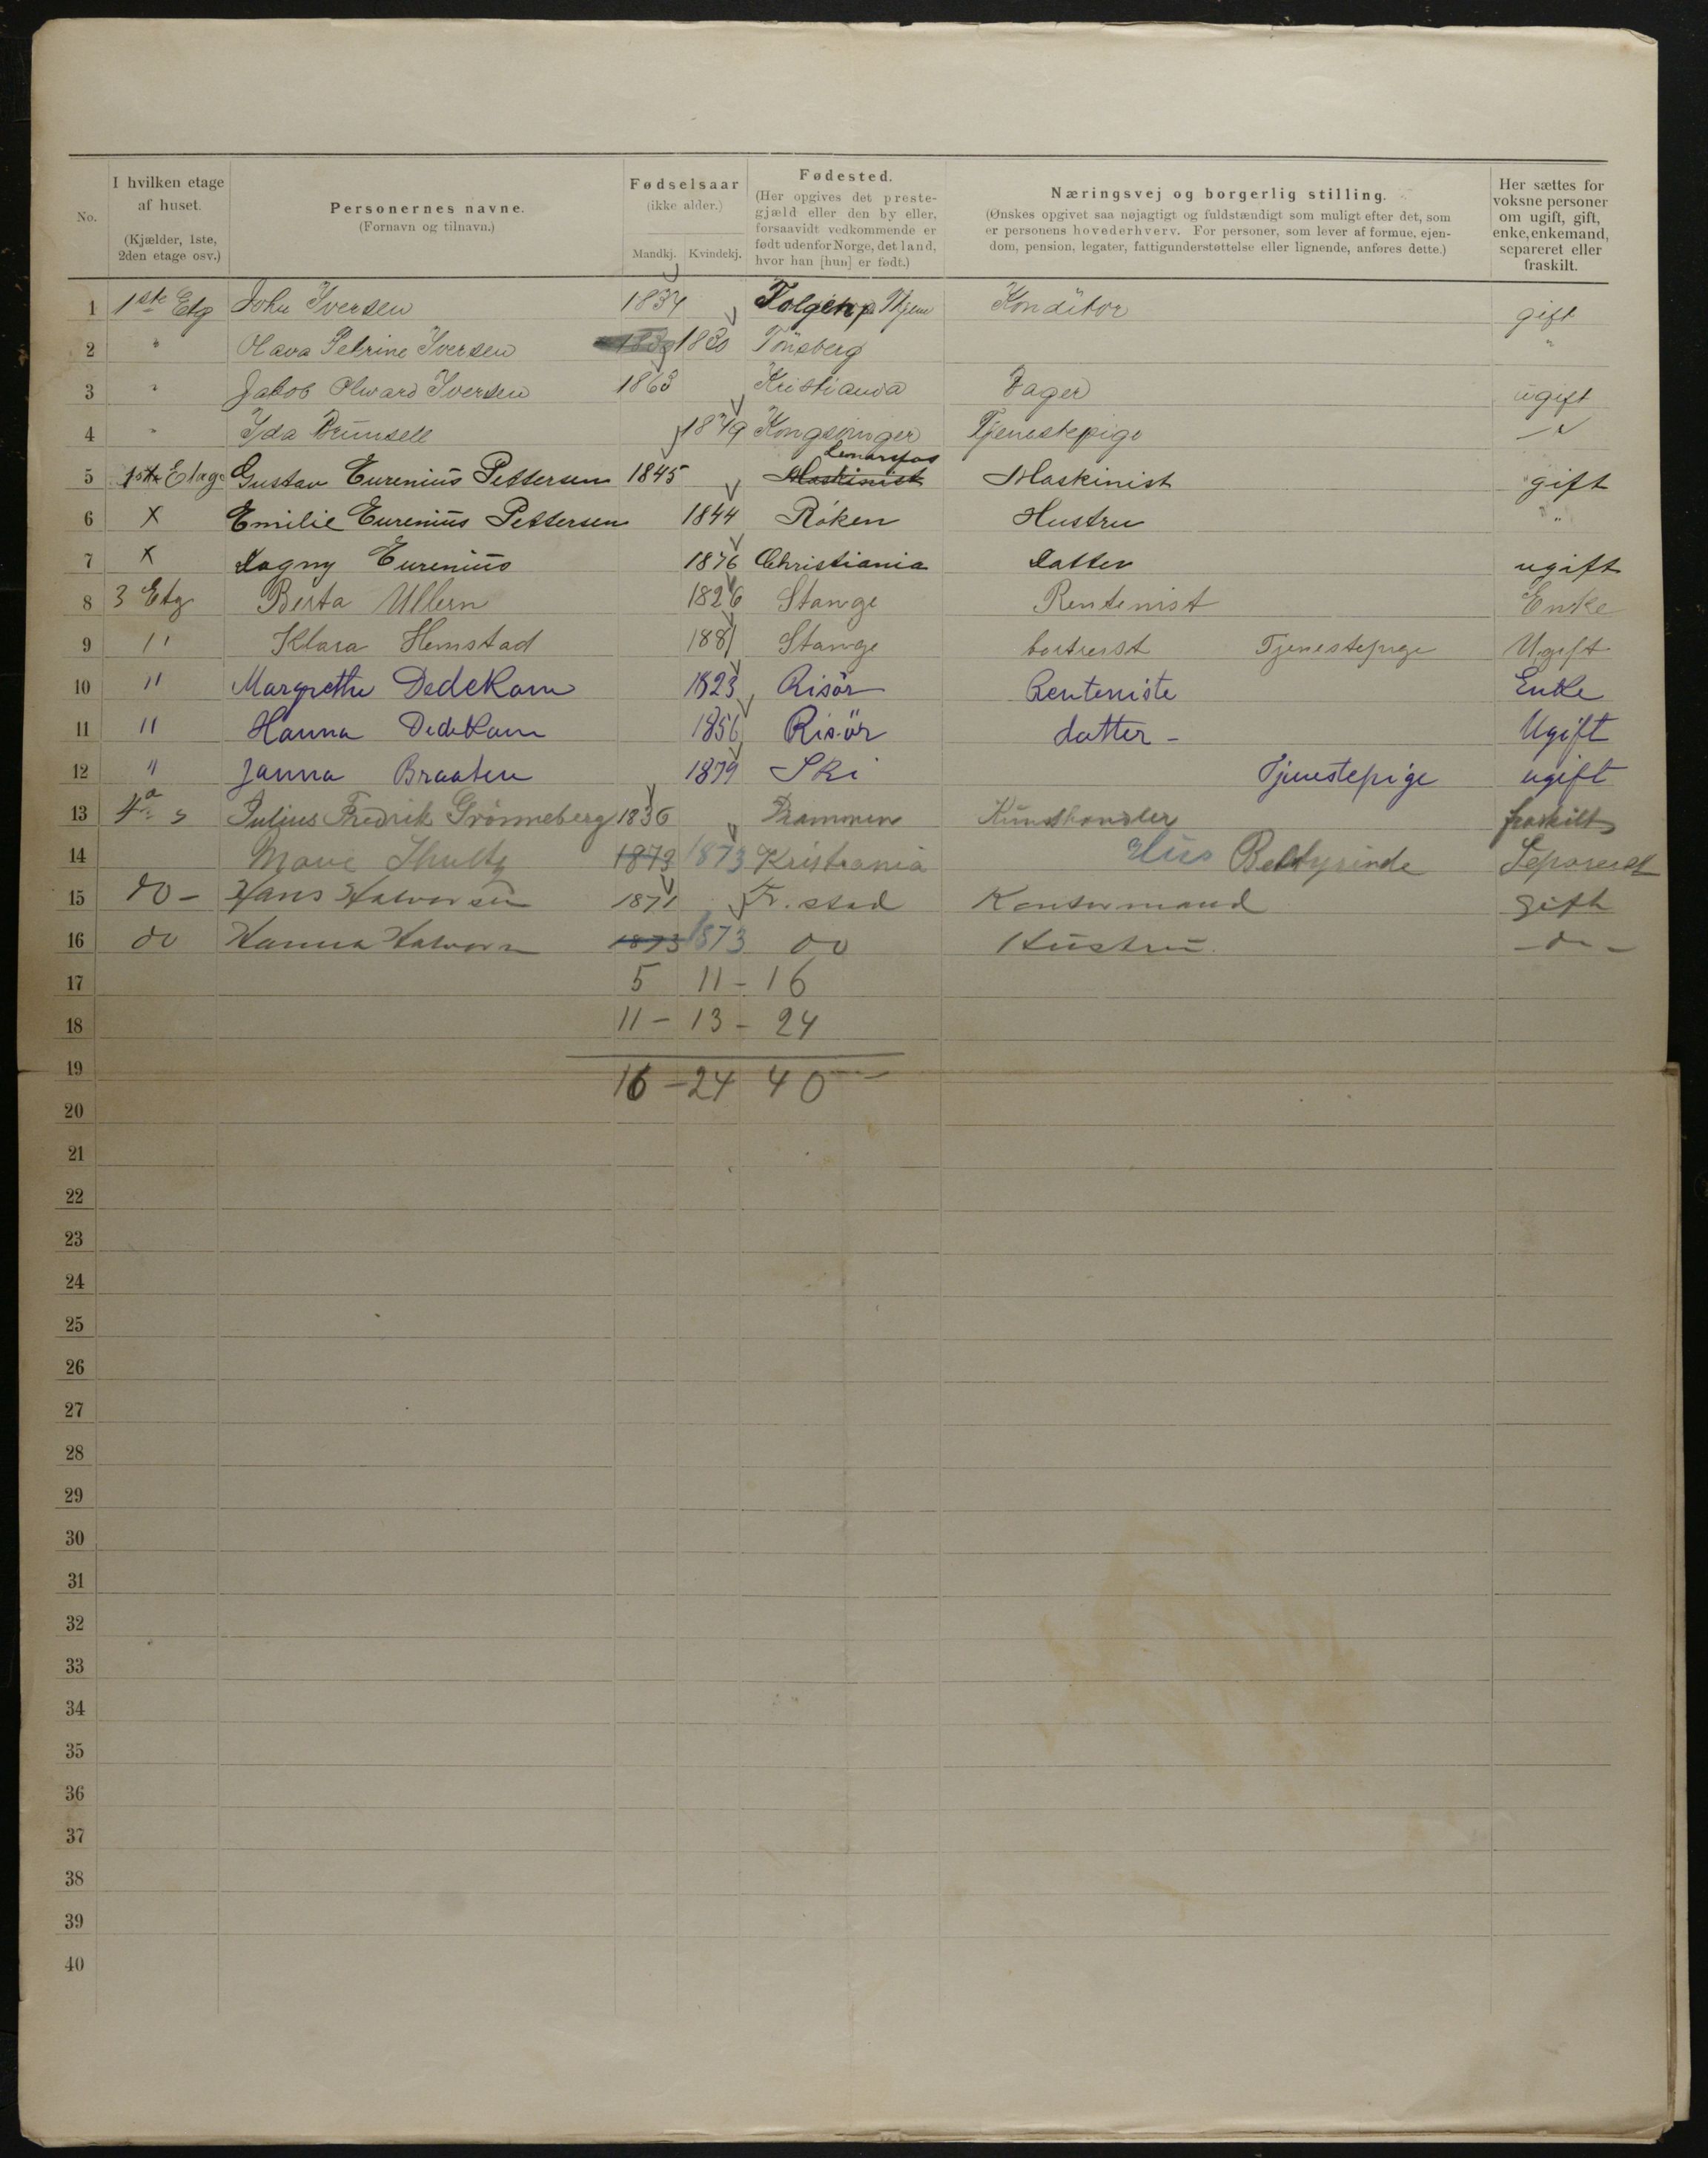 No. | I hvilken etage af huset. (Kjælder, 1ste, 2den etage osv.) | Personernes navne. (Fornavn og tilnavn.) | Fødselsaar (ikke alder.) Mandkj. Kvindekj. | Fødested. (Her opgives det prestegjæld eller den by eller, forsaavidt vedkommende er født udenfor Norge, det land, hvor han [hun] er født.) | Næringsvej og borgerlig stilling. (Ønskes opgivet saa nøjagtigt og fuldstændigt som muligt efter det, som er personens hovederhverv. For personer, som lever af formue, ejendom, pension, legater, fattigunderstøttelse eller lignende, anføres dette.) | Her sættes for voksne personer om ugift, gift, enke, enkemand, separeret eller fraskilt.
1 1ste Etg John Iversen 1834 Konditor gift
2 " Olava Petrine Iversen 1830 Tönsberg "
3 " Jakob Olward Iversen 1863 Kristiania ugift
4 " Ida Brunsell Kongsvinger Tjenestepige
5 1ste Etage Gustav Eurenius Pettersen 1845 Maskinist Maskinist gift
6 x Emilie Eurenius Pettersen 1844 Röken Hustru "
7 x Dagny Eurenius 1876 Christiania Datter ugift
8 3 Etg Berta Ullern 1826 Stange Rentenist Enke
9 " Klara Hemstad 1881 Stange bortreist Tjenestepige Ugift
10 " Margrethe Dedekam 1823 Risör Renteniste Enke
11 " Hanna Dedekam 1856 Risör datter - Ugift
12 " Janna Braaten 1879 Ski Tjenestepige ugift
13 Julius Fredrik Grönneberg 1836 Drammen Kunsthandler fraskilt
14 1873 1873 Kristiania Hus Bestyrinde Separeret
15 do - Hans Halvorsen 1871 Fr. stad Kontormand gift
16 do Hanna 1873 1873 do Hustru - do -
17 5 11 - 16
18 11 - 13 - 24
19 16 - 24 40
20
21
22
23
24
25
26
27
28
29
30
31
32
33
34
35
36
37
38
39
40